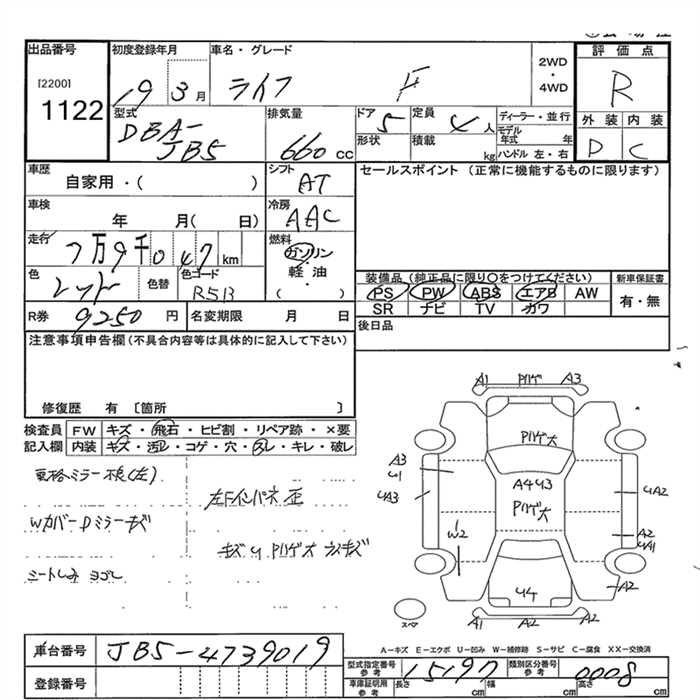 出品番号
[2200]
1122
初度登録年月
19 3月
車名・グレード
ライフ F
2WD
・
4WD
評価点
R
型式
DBA-
JB5
排気量
660 cc
ドア
5
形状
定員
4人
積載
kg
ディーラー・並行
モデル
年式 年
ハンドル 左・右
外装 内装
D C
車歴
自家用・( )
シフト
AT
セールスポイント (正常に機能するものに限ります)
車検
年 月( 日)
冷房
AAC
走行
7万9千047 km
燃料
ガソリン
・
軽油
・
( )
色
レッド
色替
色コード
R513
装備品 (純正品に限り○をつけてください)
PS PW ABS エアB AW
SR ナビ TV カワ
新車保証書
有・無
R券 9250円
名変期限 月 日
後日品
注意事項申告欄(不具合内容等は具体的に記入して下さい)
修復歴 有 〔箇所 〕
検査員
記入欄
FW キズ・飛石・ヒビ割・リペア跡・×要
内装 キズ・汚レ・コゲ・穴・スレ・キレ・破レ
電格ミラー不良(左)
Wカバー Dミラーキズ
シートしみ ヨゴレ
キズ U
A1 A3
A3
U1
UA3
A4 U3
W2
UA2
A2
UA1
A2
U4
A1 A2 A2
スペア
A−キズ E−エクボ U−凹み W−補修跡 S−サビ C−腐食 XX−交換済
車台番号 JB5-4739019
登録番号
型式指定番号
参考
15197
類別区分番号
参考
0008
車庫証明用
参考
長さ cm
幅 cm
高さ cm